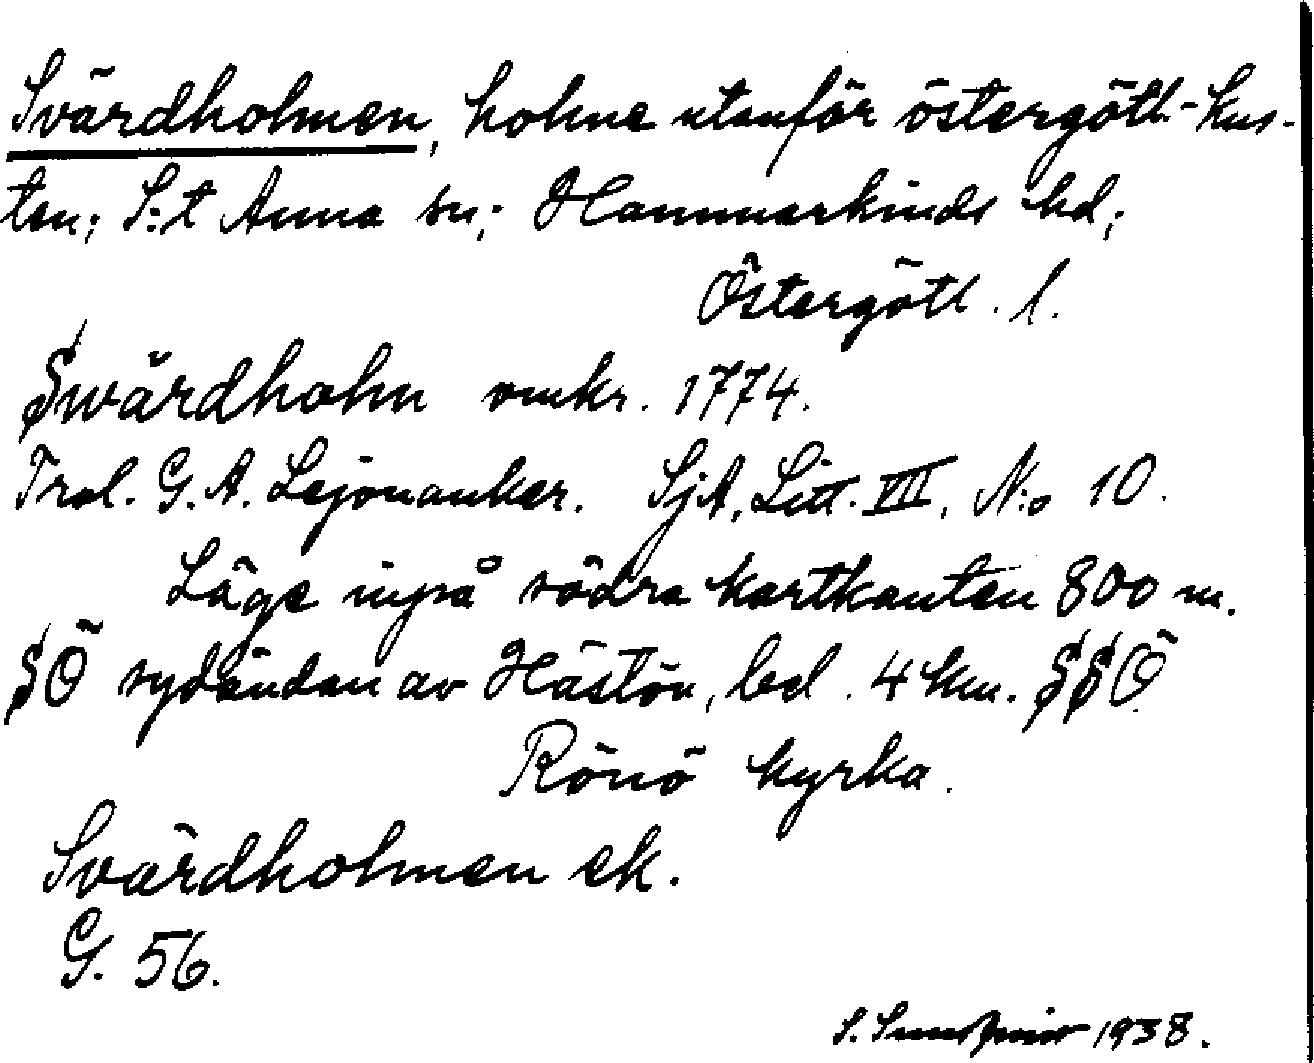 Svärdholmen, holme utanför östergötl.-kus-
ten; S:t Anna sn; Hammarkinds hd;
Östergötl. l.
Swärdholm omkr. 1774.
Trol. G. A. Lejonanker. SjA, Litt. VII, N:o 10.
Läge inpå södra kartkanten 800 m.
SÖ sydändan av Hästön, bel. 4 km. SSÖ
Rönö kyrka.
Svärdholmen ek.
G. 56.
S. 1938.